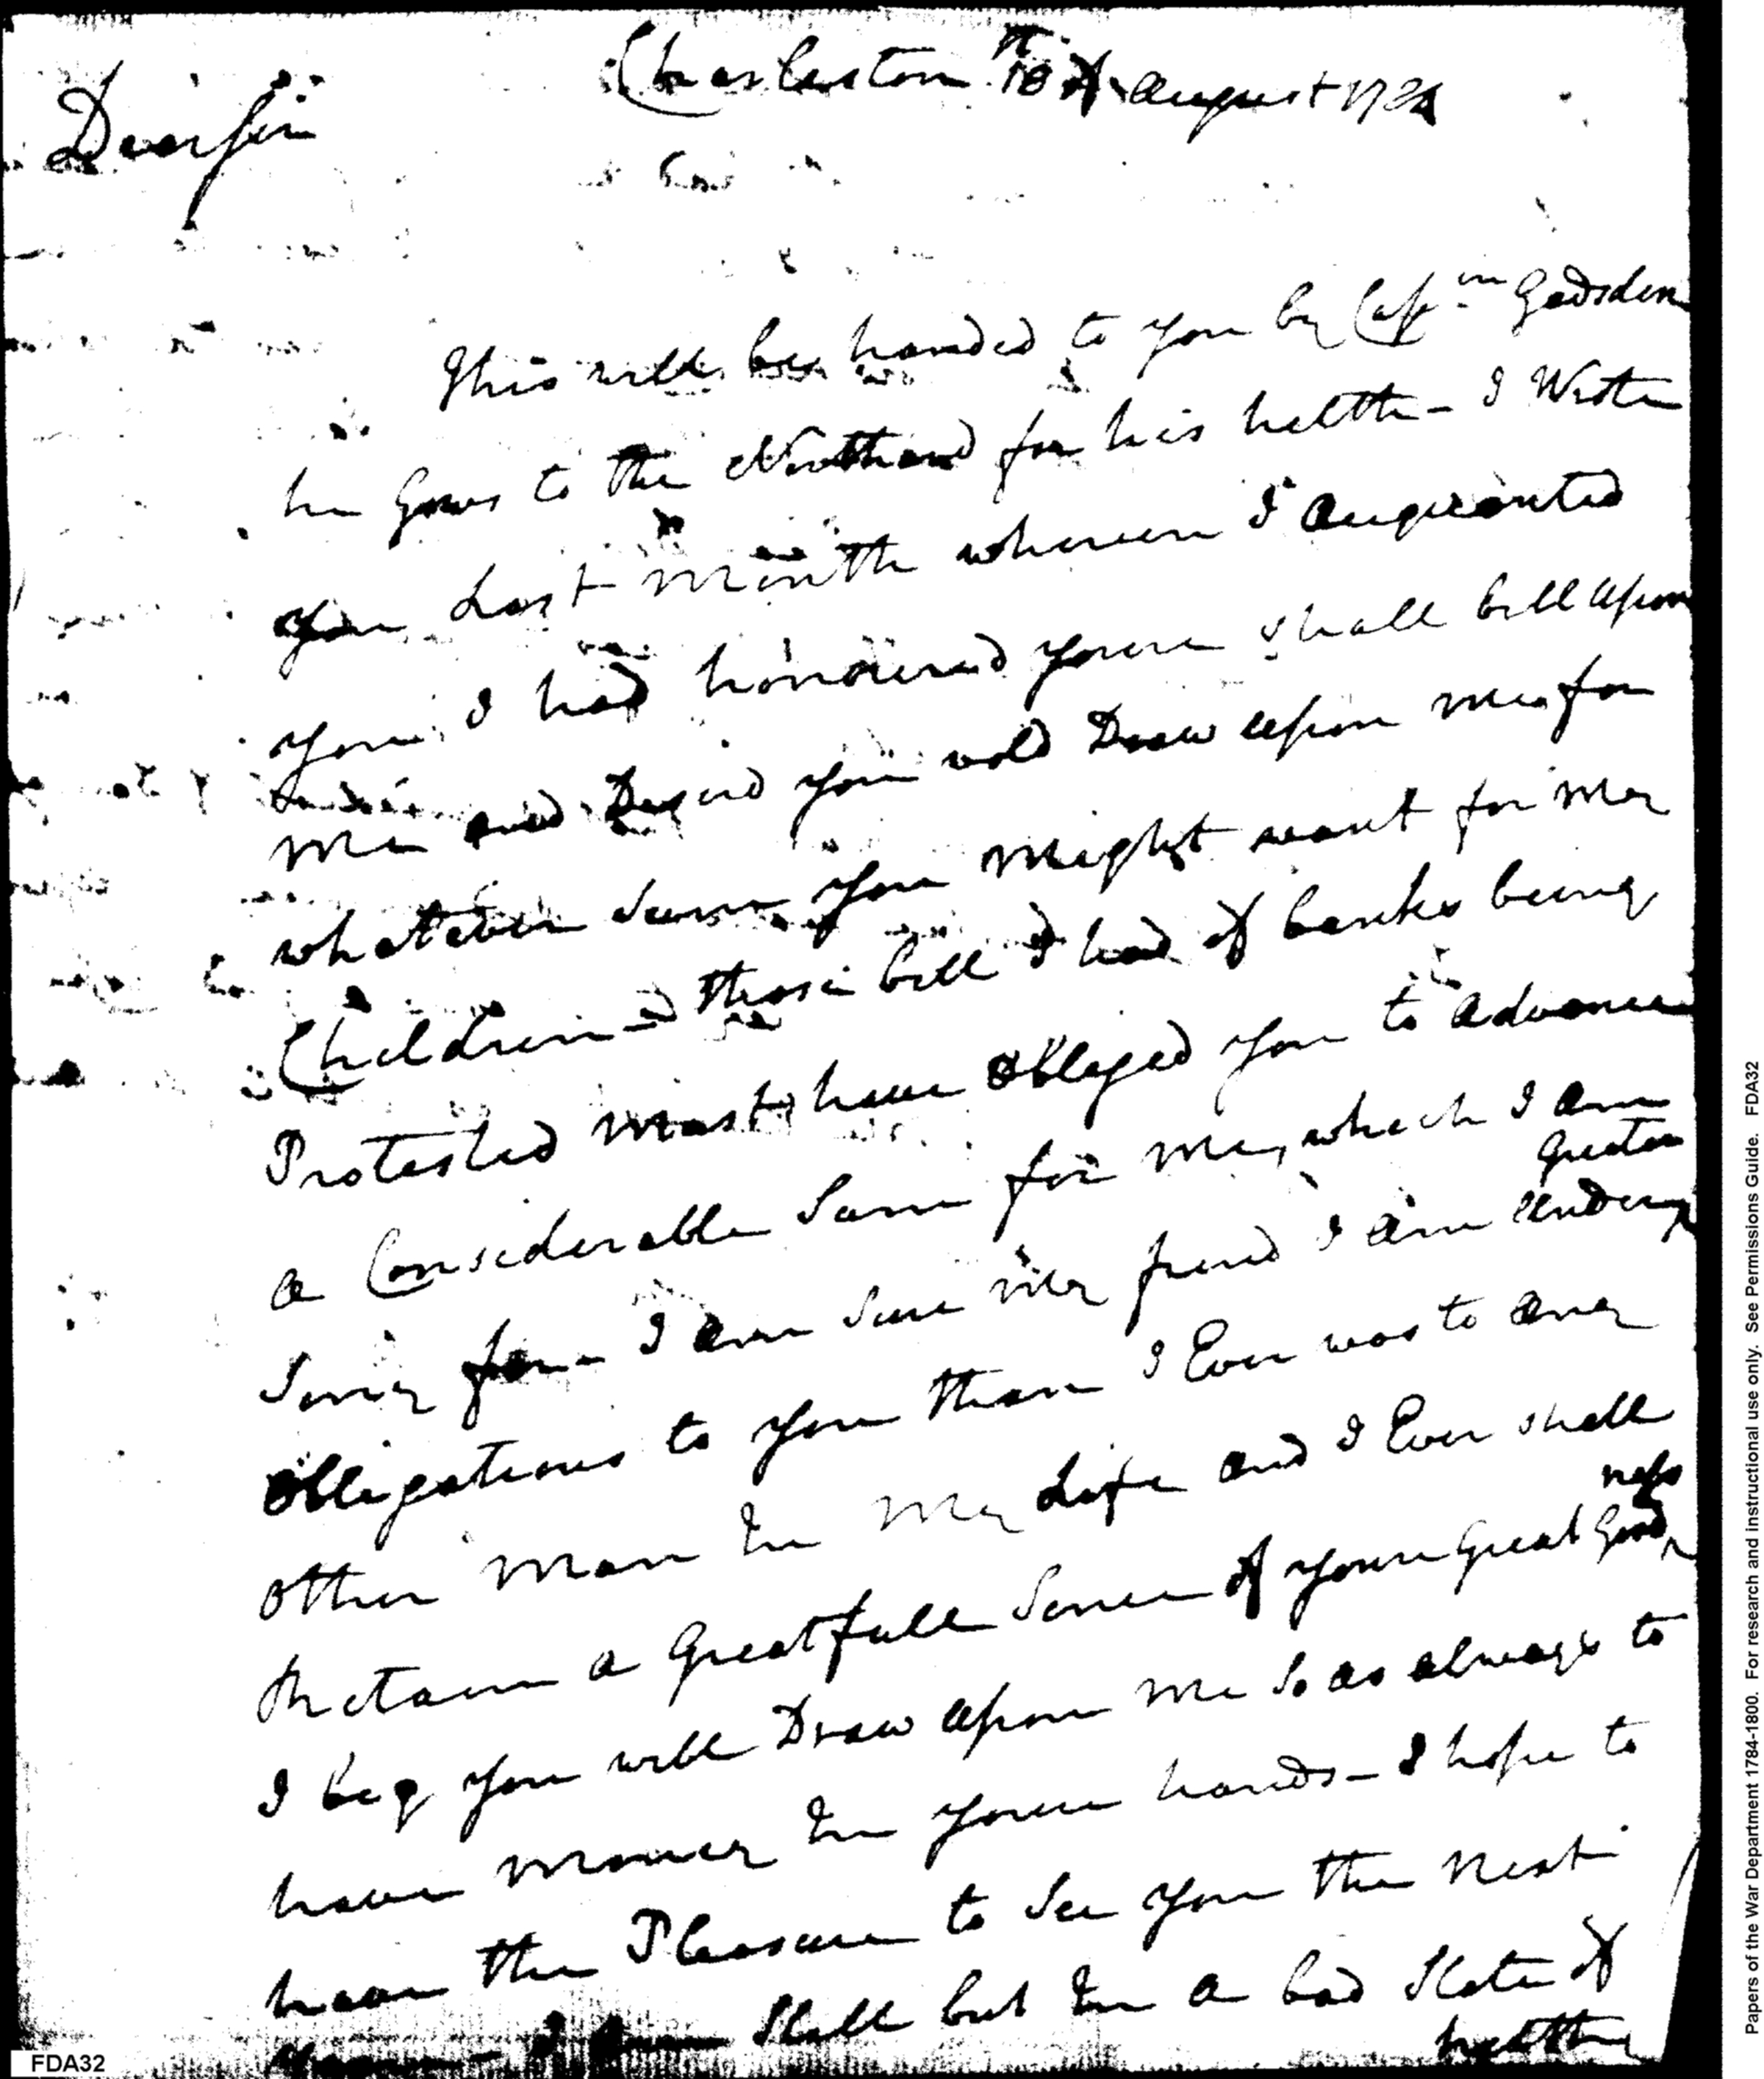 Charleston 18th of August 1784
Dear Sir
This will be handed to you by Capn Gadsden
he Goes to the Northard for his helth - I Wrote
you Last Month wherein I acquainted
you I had honoured youre small bill upon
me and Desired you wold Draw upon me for
whatever Sum you Might want for my
Children - those bill I had of banks being
Protested Must have obleged you to advance
a Considerable Sum for me, which I am
Sorry for - I am Sure my friend I am under greater
obligations to you than I Ever was to any
other Man In my Life and I Ever shall
Retain a Greatfull Sence of youre Great Goodness
I beg you will Draw upon me So as always to
have Money In youre hands - I hope to
have the Pleasure to See you the next
I am Still but In a bad State of
helth
FDA32
Papers of the War Department 1784-1800. For research and instructional use only. See Permissions Guide. FDA32